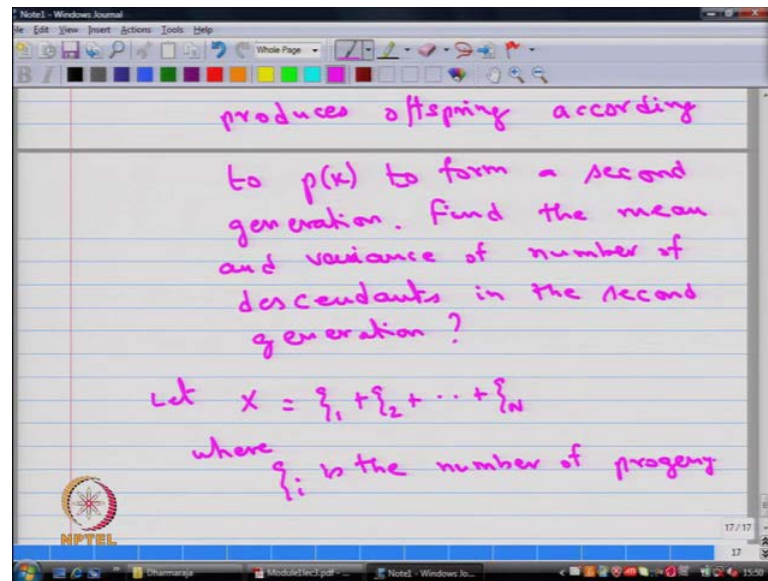 Note1 - Windows Journal
File Edit View Insert Actions Tools Help
Whole Page
B I
produces offspring according
to p(x) to form a second
generation. Find the mean
and variance of number of
descendants in the second
generation?
Let X = ξ₁ + ξ₂ + ... + ξ_N
where
ξᵢ is the number of progeny
NPTEL
17 / 17
17
Dharmaraja Module1lec3.pdf - ... Note1 - Windows Jo... 15:50